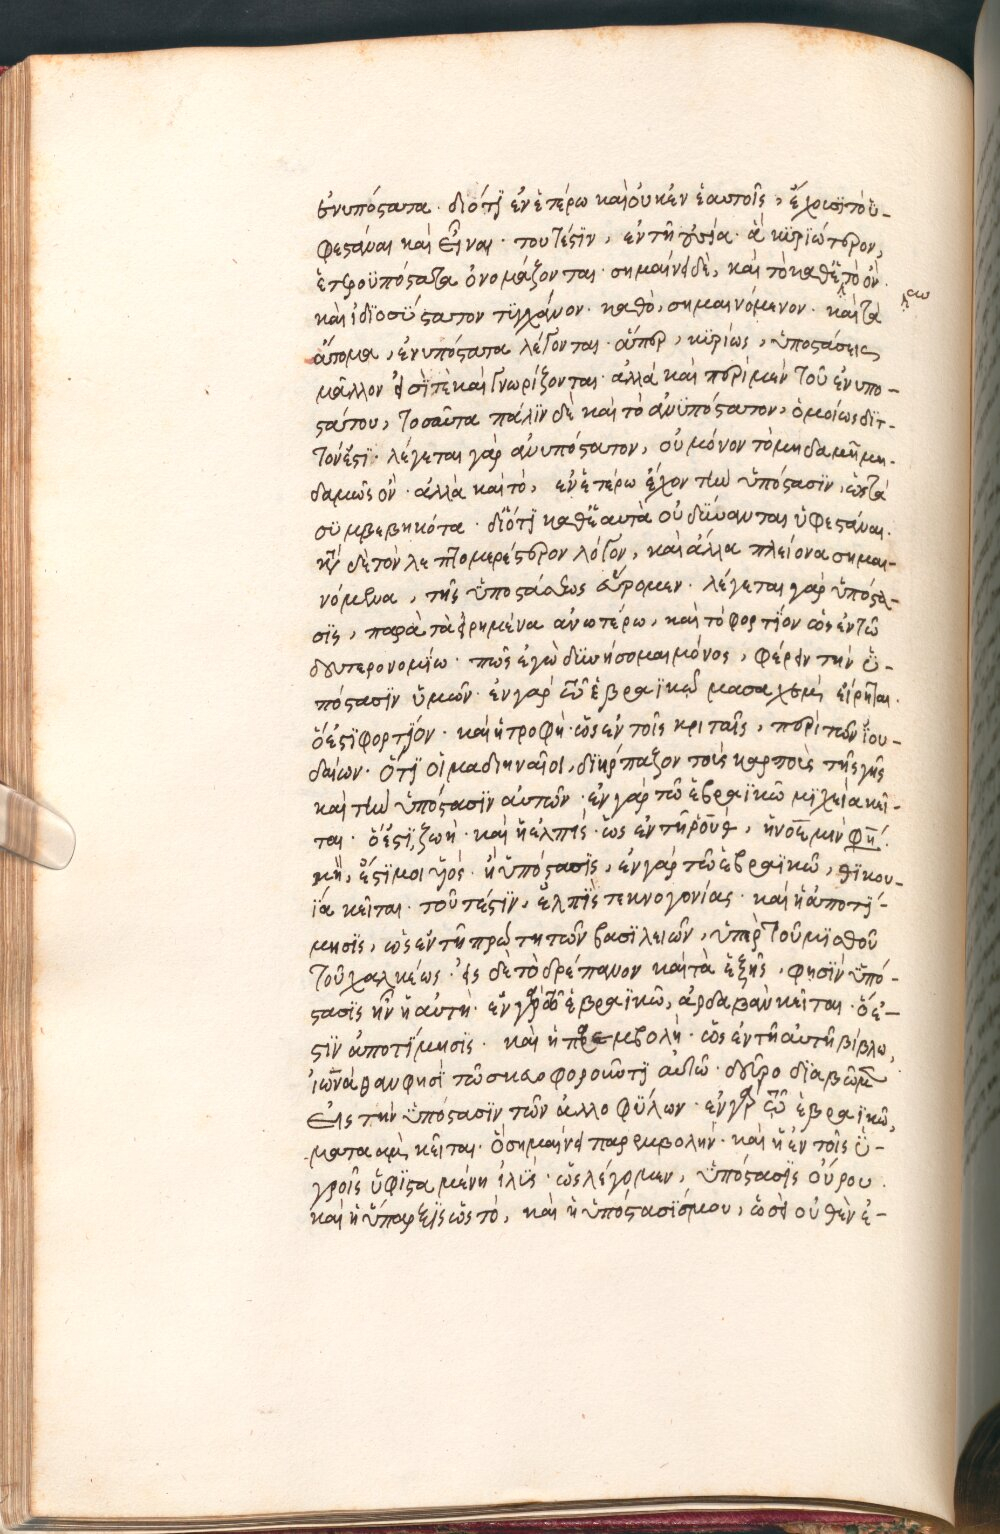 ἐνυπόστατα· διότι ἐν ἑτέρω καὶ οὐκ ἐν ἑαυτοῖς, ἔχουσι τὸ ὑ-
φεστάναι καὶ εἶναι· τουτέστιν, ἐν τῆ οὐσία· ἃ κυριώτερον,
ἑτεροϋπόστατα ὀνομάζονται· σημαίνει δὲ, καὶ τὸ καθ' ἑαυτὸ ὂν
καὶ ἰδιοσύστατον τυγχάνον· καθὸ, σημαινόμενον· καὶ τὰ
ἄτομα, ἐνυπόστατα λέγονται· ἅπερ, κυρίως, ὑποστάσεις
μᾶλλον εἰσί τε καὶ γνωρίζονται· ἀλλὰ καὶ περὶ μὲν τοῦ ἐνυπο-
στάτου, τοσαῦτα πάλιν δὲ καὶ τὸ ἀνυπόστατον, ὁμοίως διτ-
τόν ἐστι· λέγεται γὰρ ἀνυπόστατον, οὐ μόνον τὸ μηδαμῆ μη-
δαμῶς ὂν· ἀλλὰ καὶ τὸ, ἐν ἑτέρω ἔχον τὴν ὑπόστασιν, ὡς τὰ
συμβεβηκότα· διότι καθ' ἑαυτὰ οὐ δύνανται ὑφεστάναι·
κατὰ δὲ τὸν λεπτομερέστερον λόγον, καὶ ἄλλα πλείονα σημαι-
νόμενα, τῆς ὑποστάσεως εὕρομεν· λέγεται γὰρ ὑπόστα-
σις, παρὰ τὰ εἰρημένα ἀνωτέρω, καὶ τὸ φορτίον ὡς ἐν τῶ
δευτερονομίω· πῶς ἐγὼ δυνήσομαι μόνος, φέρειν τὴν ὑ-
πόστασιν ὑμῶν· ἐν γὰρ τῶ ἑβραϊκῶ μασαχεμ εἴρηται·
ὅ ἐστι φορτίον· καὶ ἡ τροφὴ· ὡς ἐν τοῖς κριταῖς, περὶ τῶν ἰου-
δαίων· ὅτι οἱ μαδιηναῖοι, διήρπαζον τοὺς καρποὺς τῆς γῆς
καὶ τὴν ὑπόστασιν αὐτῶν· ἐν γὰρ τῶ ἑβραϊκῶ μιχεία κεῖ-
ται· ὅ ἐστι, ζωὴ· καὶ ἡ ἐλπὶς· ὡς ἐν τῆ ῥοὺθ, ἡ νοεμμὶν φησί·
μὴ, ἔστι μοι υἱὸς· ἢ ὑπόστασις, ἐν γὰρ τῶ ἑβραϊκῶ, θικου-
ία κεῖται· τουτέστιν, ἐλπὶς τεκνογονίας· καὶ ἡ ἀποτί-
μησις, ὡς ἐν τῆ πρώτη τῶν βασιλειῶν, ὑπὲρ τοῦ μισθοῦ
τοῦ χαλκέως· εἰς δὲ τὸ δρέπανον καὶ τὰ ἑξῆς, φησὶν ὑπό-
στασις ἦν ἡ αὐτὴ· ἐν γὰρ τῶ ἑβραϊκῶ, ἀρδαβαν κεῖται· ὅ ἐ-
στιν ἀποτίμησις· καὶ ἡ παρεμβολὴ· ὡς ἐν τῆ αὐτῆ βίβλω,
ἰωνάθαν φησὶ τῶ σκευοφοροῦντι αὐτῶ· δεῦρο διαβῶμεν
εἰς τὴν ὑπόστασιν τῶν ἀλλοφύλων· ἐν γὰρ τῶ ἑβραϊκῶ,
ματααμ κεῖται· ὃ σημαίνει παρεμβολὴν· καὶ ἡ ἐν τοῖς ὑ-
γροῖς ὑφισταμένη ἰλὺς· ὡς λέγομεν, ὑπόστασις οὔρου·
καὶ ἡ ὕπαρξις ὡς τὸ, καὶ ἡ ὑπόστασίς μου, ὡσεὶ οὐθὲν ἐ-